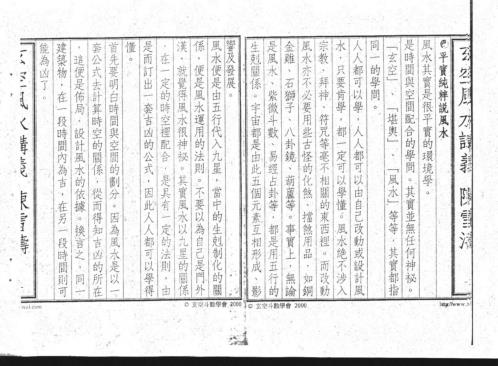 玄空風水講義 陳雪濤
平實純粹說風水
風水其實是很平實的環境學。
是時間與空間配合的學問。其實並無任何神秘。
「玄空」、「堪輿」、「風水」等等,其實都指
同一的學問。
人人都可以學,人人都可以由自己改動或設計風
水,只要肯學,都一定可以學懂。風水絕不涉入
宗教、拜神、符咒等毫不相關的東西裡。而改動
風水亦不必要用些古怪的化煞、擋煞用品,如銅
金雞、石獅子、八卦鏡、葫蘆等。事實上,無論
是風水、紫微斗數、易經占卦等,都是用五行的
生剋關係。宇宙都是由此五個元素互相形成、影
響及發展。
風水便是由五行代入九星,當中的生剋制化的關
係,便是風水運用的法則。不要以為自己是門外
漢,就覺得風水很神秘。其實風水以九星的關係
,在一定的時空裡配合,是具有一定的法則,由
是而訂出一套吉凶的公式,因此人人都可以學得
懂。
首先要明白時間與空間的劃分。因為風水是以一
套公式去計算時空的關係,從而得知吉凶的所在
,這便是佈局,設計風水的依據。換言之,同一
建築物,在一段時間內為吉,在另一段時間則可
能為凶了。
玄空風水講義 陳雪濤
© 玄空斗數學會 2000
© 玄空斗數學會 2000